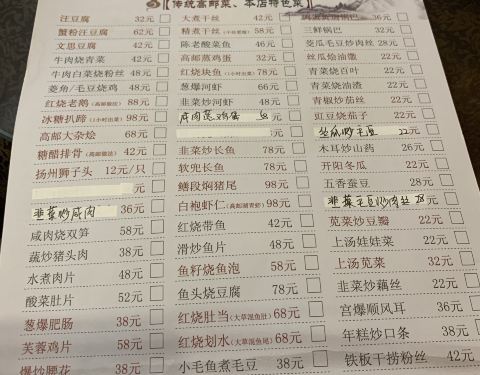 传统高邮菜、本店特色菜
汪豆腐 32元
蟹粉汪豆腐 62元
文思豆腐 42元
牛肉烧青菜 42元
牛肉白菜烧粉丝 48元
菱角/毛豆烧鸡 48元
红烧老鹅(高邮做法) 88元
冰糖扒蹄(1小时出菜) 98元
高邮大杂烩 68元
糖醋排骨(高邮做法) 42元
扬州狮子头 12元/只
元
韭菜炒咸肉 36元
咸肉烧双笋 58元
蔬炒猪头肉 38元
水煮肉片 48元
酸菜肚片 52元
葱爆肥肠 38元
芙蓉鸡片 58元
爆炒腰花 38元
大煮干丝 42元
精煮干丝 58元
陈老酸菜鱼 46元
高邮蒸鸡蛋 32元
红烧块鱼(1小时出菜) 78元
葱爆河虾 66元
韭菜炒河虾 48元
咸肉蒸鸡蛋
68元
韭菜炒长鱼 78元
软兜长鱼 78元
鳝段焖猪尾 98元
白袍虾仁(高邮湖青虾) 98元
红烧带鱼 42元
滑炒鱼片 48元
鱼籽烧鱼泡 58元
鱼头烧豆腐 78元
红烧肚当(大草混鱼肚) 68元
红烧划水(大草混鱼尾) 68元
小毛鱼煮毛豆 38元
36元
三鲜锅巴 32元
茭瓜毛豆炒肉丝 28元
丝瓜烩油馓 22元
青菜烧百叶 22元
青菜烧油渣 22元
青椒炒茄丝 22元
豇豆烧茄子 22元
丝瓜炒毛豆 22元
木耳炒山药 26元
开阳冬瓜 22元
五香蚕豆 28元
韭菜毛豆炒肉丝 28元
苋菜炒豆瓣 22元
上汤娃娃菜 22元
上汤苋菜 32元
韭菜炒藕丝 22元
宫爆顺风耳 36元
年糕炒口条 38元
铁板干捞粉丝 42元